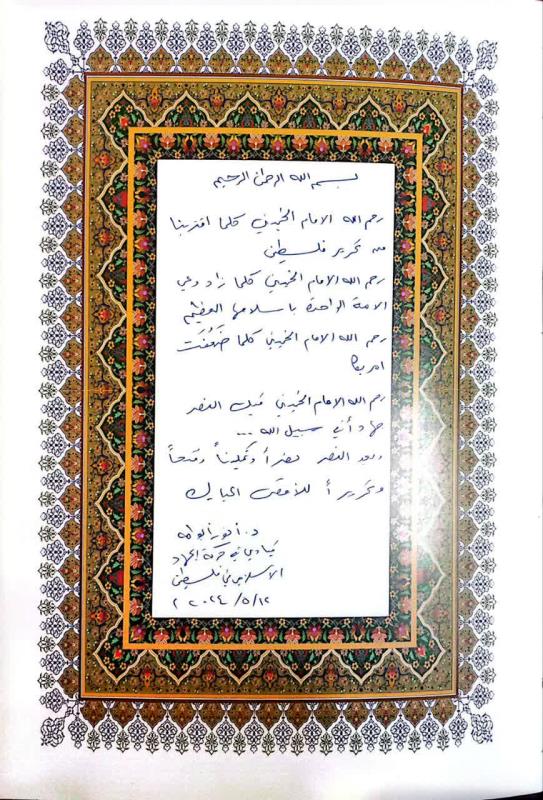 بسم الله الرحمن الرحيم
رحم الله الامام الخميني كلما اقتربنا
من تحرير فلسطين
رحم الله الامام الخميني كلما زاد وعي
الامة الواحدة باسلامها العظيم
رحم الله الامام الخميني كلما ضَعُفَت
امريكا
رحم الله الامام الخميني قبل النصر
جهاداً في سبيل الله ...
وبعد النصر نصراً وتمكيناً وفتحاً
وتحريراً للأقصى المبارك
د. أنور أبو طه
قيادي في حركة الجهاد
الاسلامي في فلسطين
٢٠٢٤/٥/١٢